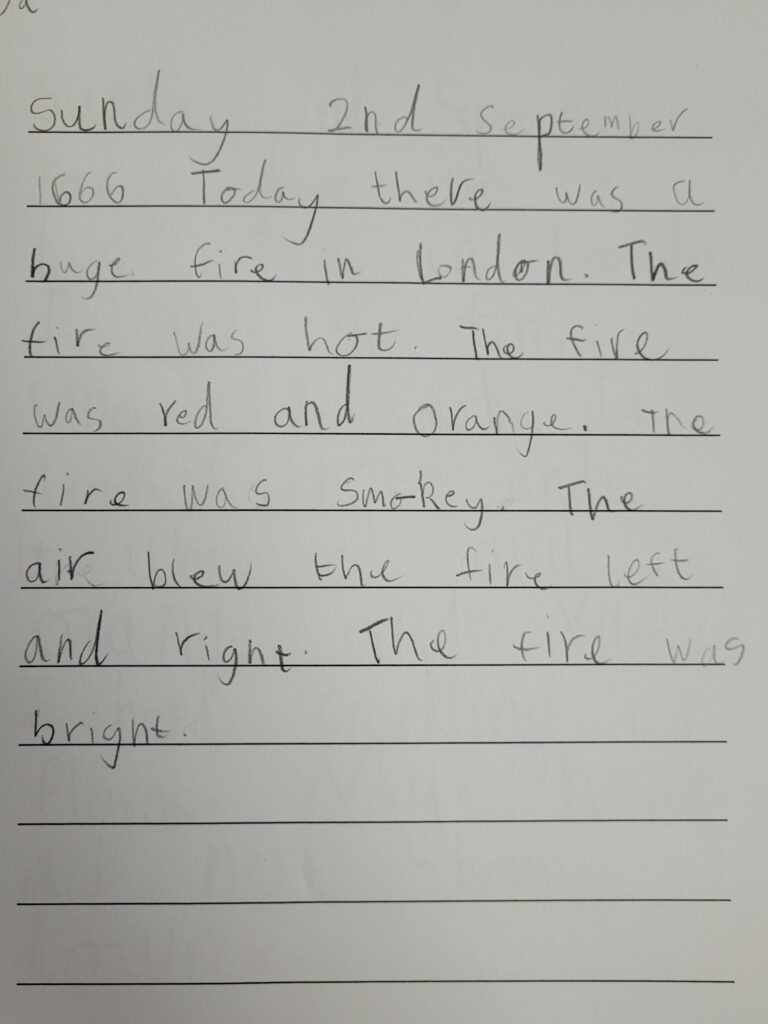 Sunday 2nd September
1666 Today there was a
huge fire in London. The
fire was hot. The fire
was red and orange. The
fire was Smokey. The
air blew the fire left
and right. The fire was
bright.